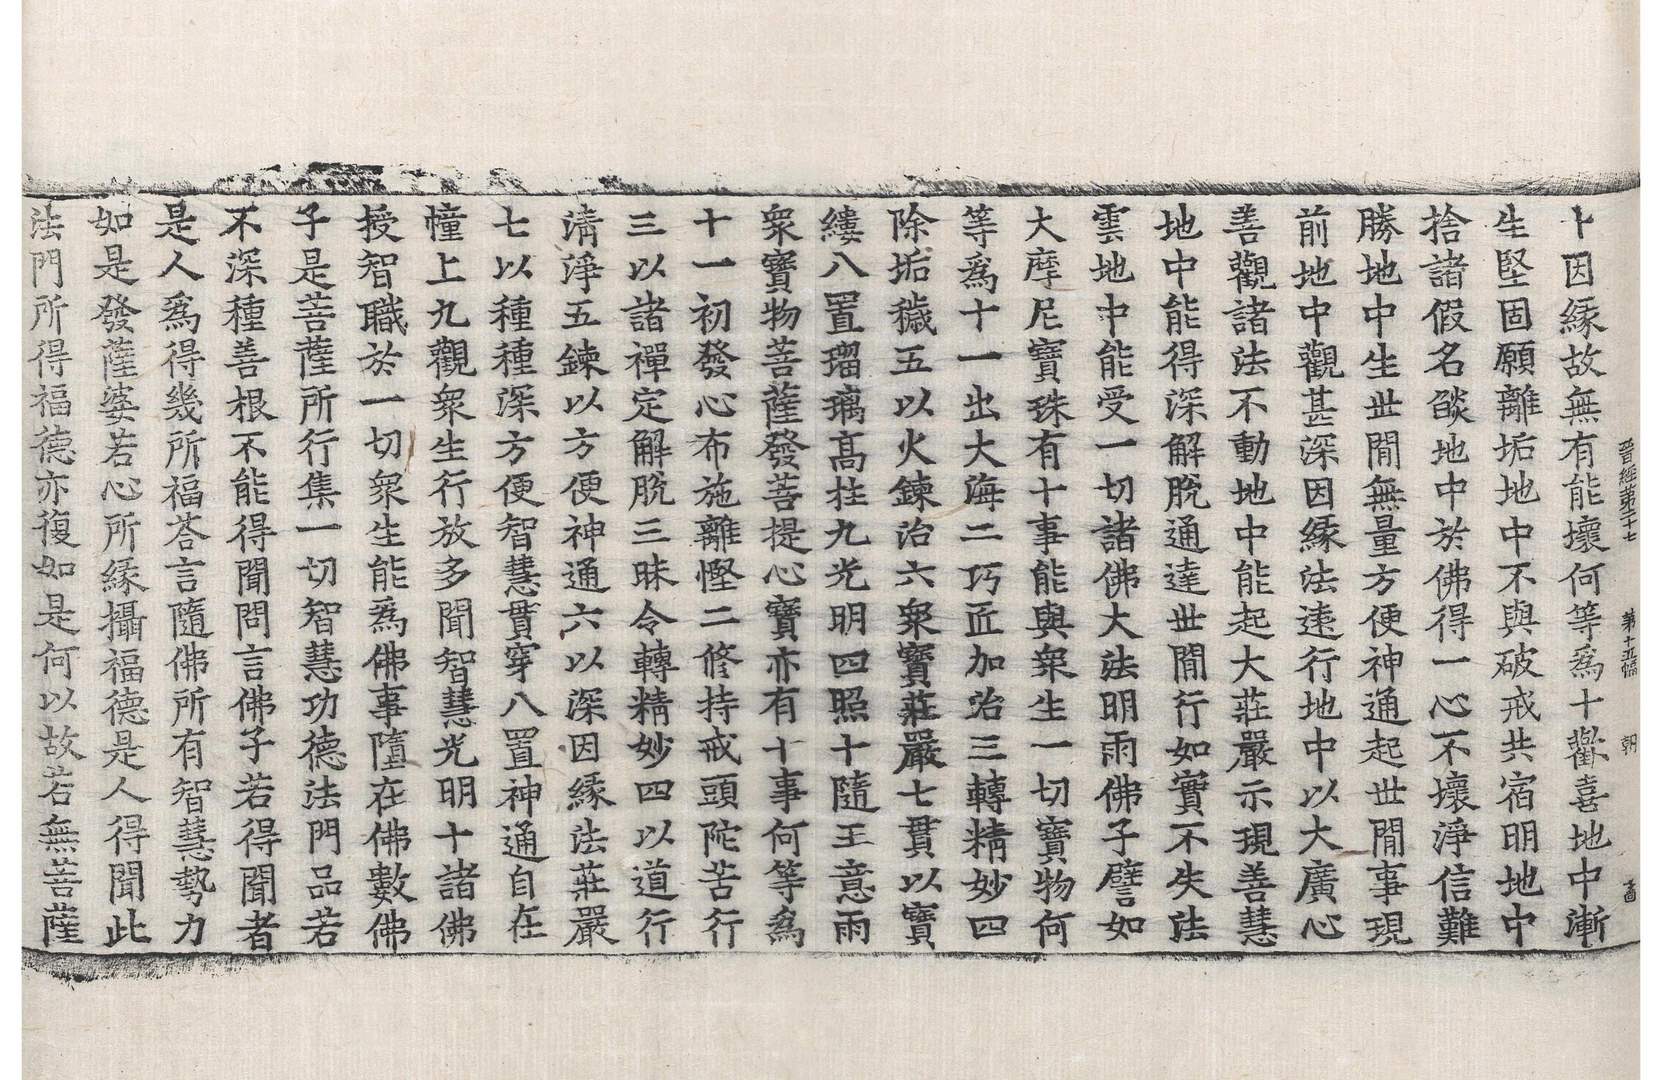 晉經第二十七　第十五幅　朝
十因縁故無有能壞何等爲十歡喜地中漸
生堅固願離垢地中不與破戒共宿明地中
捨諸假名𦦨地中於佛得一心不壞淨信難
勝地中生世閒無量方便神通起世閒事現
前地中觀甚深因縁法遠行地中以大廣心
善觀諸法不動地中能起大莊嚴示現善慧
地中能得深解脫通達世閒行如實不失法
雲地中能受一切諸佛大法明雨佛子譬如
大摩尼寶珠有十事能與衆生一切寶物何
等爲十一出大海二巧匠加治三轉精妙四
除垢穢五以火鍊治六衆寶莊嚴七貫以寶
縷八置瑠璃高柱九光明四照十隨王意雨
衆寶物菩薩發菩提心寶亦有十事何等爲
十一初發心布施離慳二修持戒頭陀苦行
三以諸禪定解脫三昧令轉精妙四以道行
清淨五鍊以方便神通六以深因縁法莊嚴
七以種種深方便智慧貫穿八置神通自在
幢上九觀衆生行放多聞智慧光明十諸佛
授智職於一切衆生能爲佛事墮在佛數佛
子是菩薩所行集一切智慧功德法門品若
不深種善根不能得聞問言佛子若得聞者
是人爲得幾所福荅言隨佛所有智慧勢力
如是發薩婆若心所縁攝福德是人得聞此
法門所得福德亦復如是何以故若無菩薩